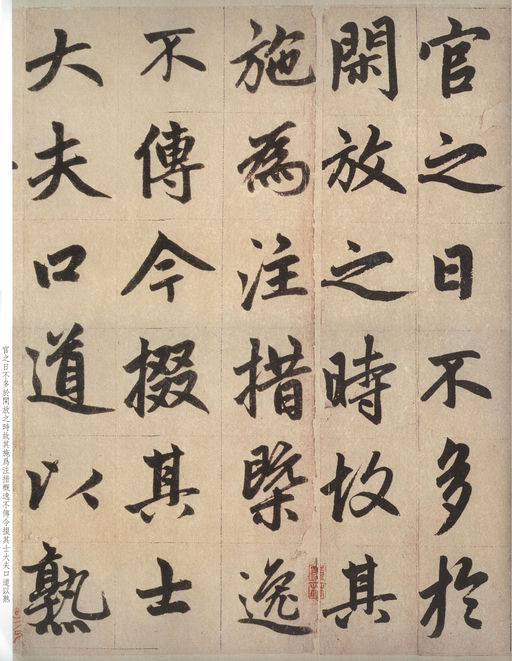 官之日不多於
閑放之時故其
施為注措槩逸
不傳今掇其士
大夫口道以熟
官之日不多於閑放之時故其施爲注措概逸不傳今掇其士大夫口道以熟